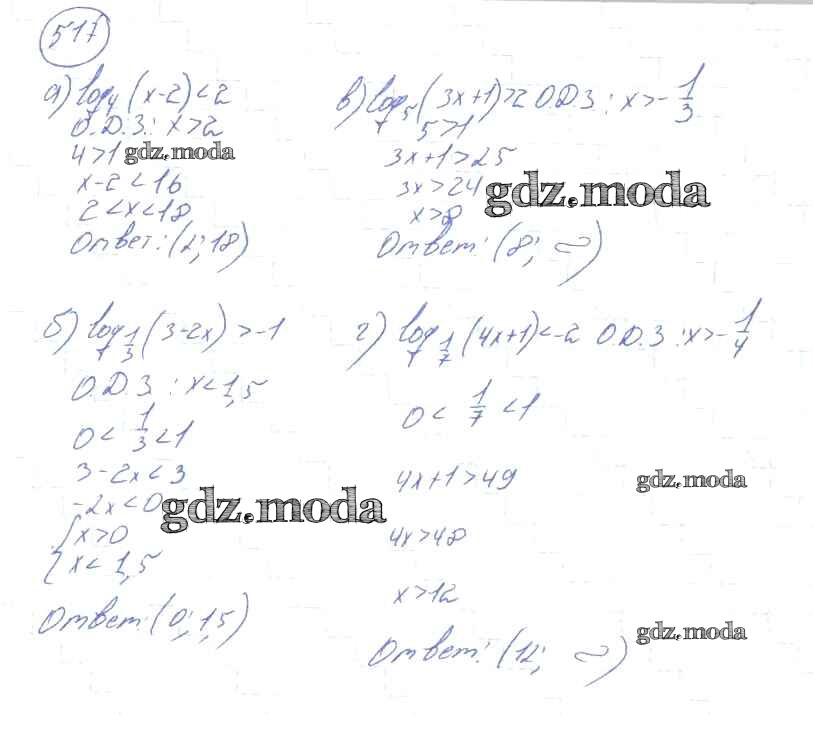 517
а) log₄(x-2)<2
О.Д.З.: x>2
4>1
x-2<16
2<x<18
Ответ: (2; 18)
б) log_{1/3}(3-2x)>-1
О.Д.З.: x<1,5
0<1/3<1
3-2x<3
-2x<0
{x>0
{x<1,5
Ответ: (0; 1,5)
в) log₅(3x+1)>2 О.Д.З.: x>-1/3
5>1
3x+1>25
3x>24
x>8
Ответ: (8; ∞)
г) log_{1/7}(4x+1)<-2 О.Д.З.: x>-1/4
0<1/7<1
4x+1>49
4x>48
x>12
Ответ: (12; ∞)
gdz.moda
gdz.moda
gdz.moda
gdz.moda
gdz.moda